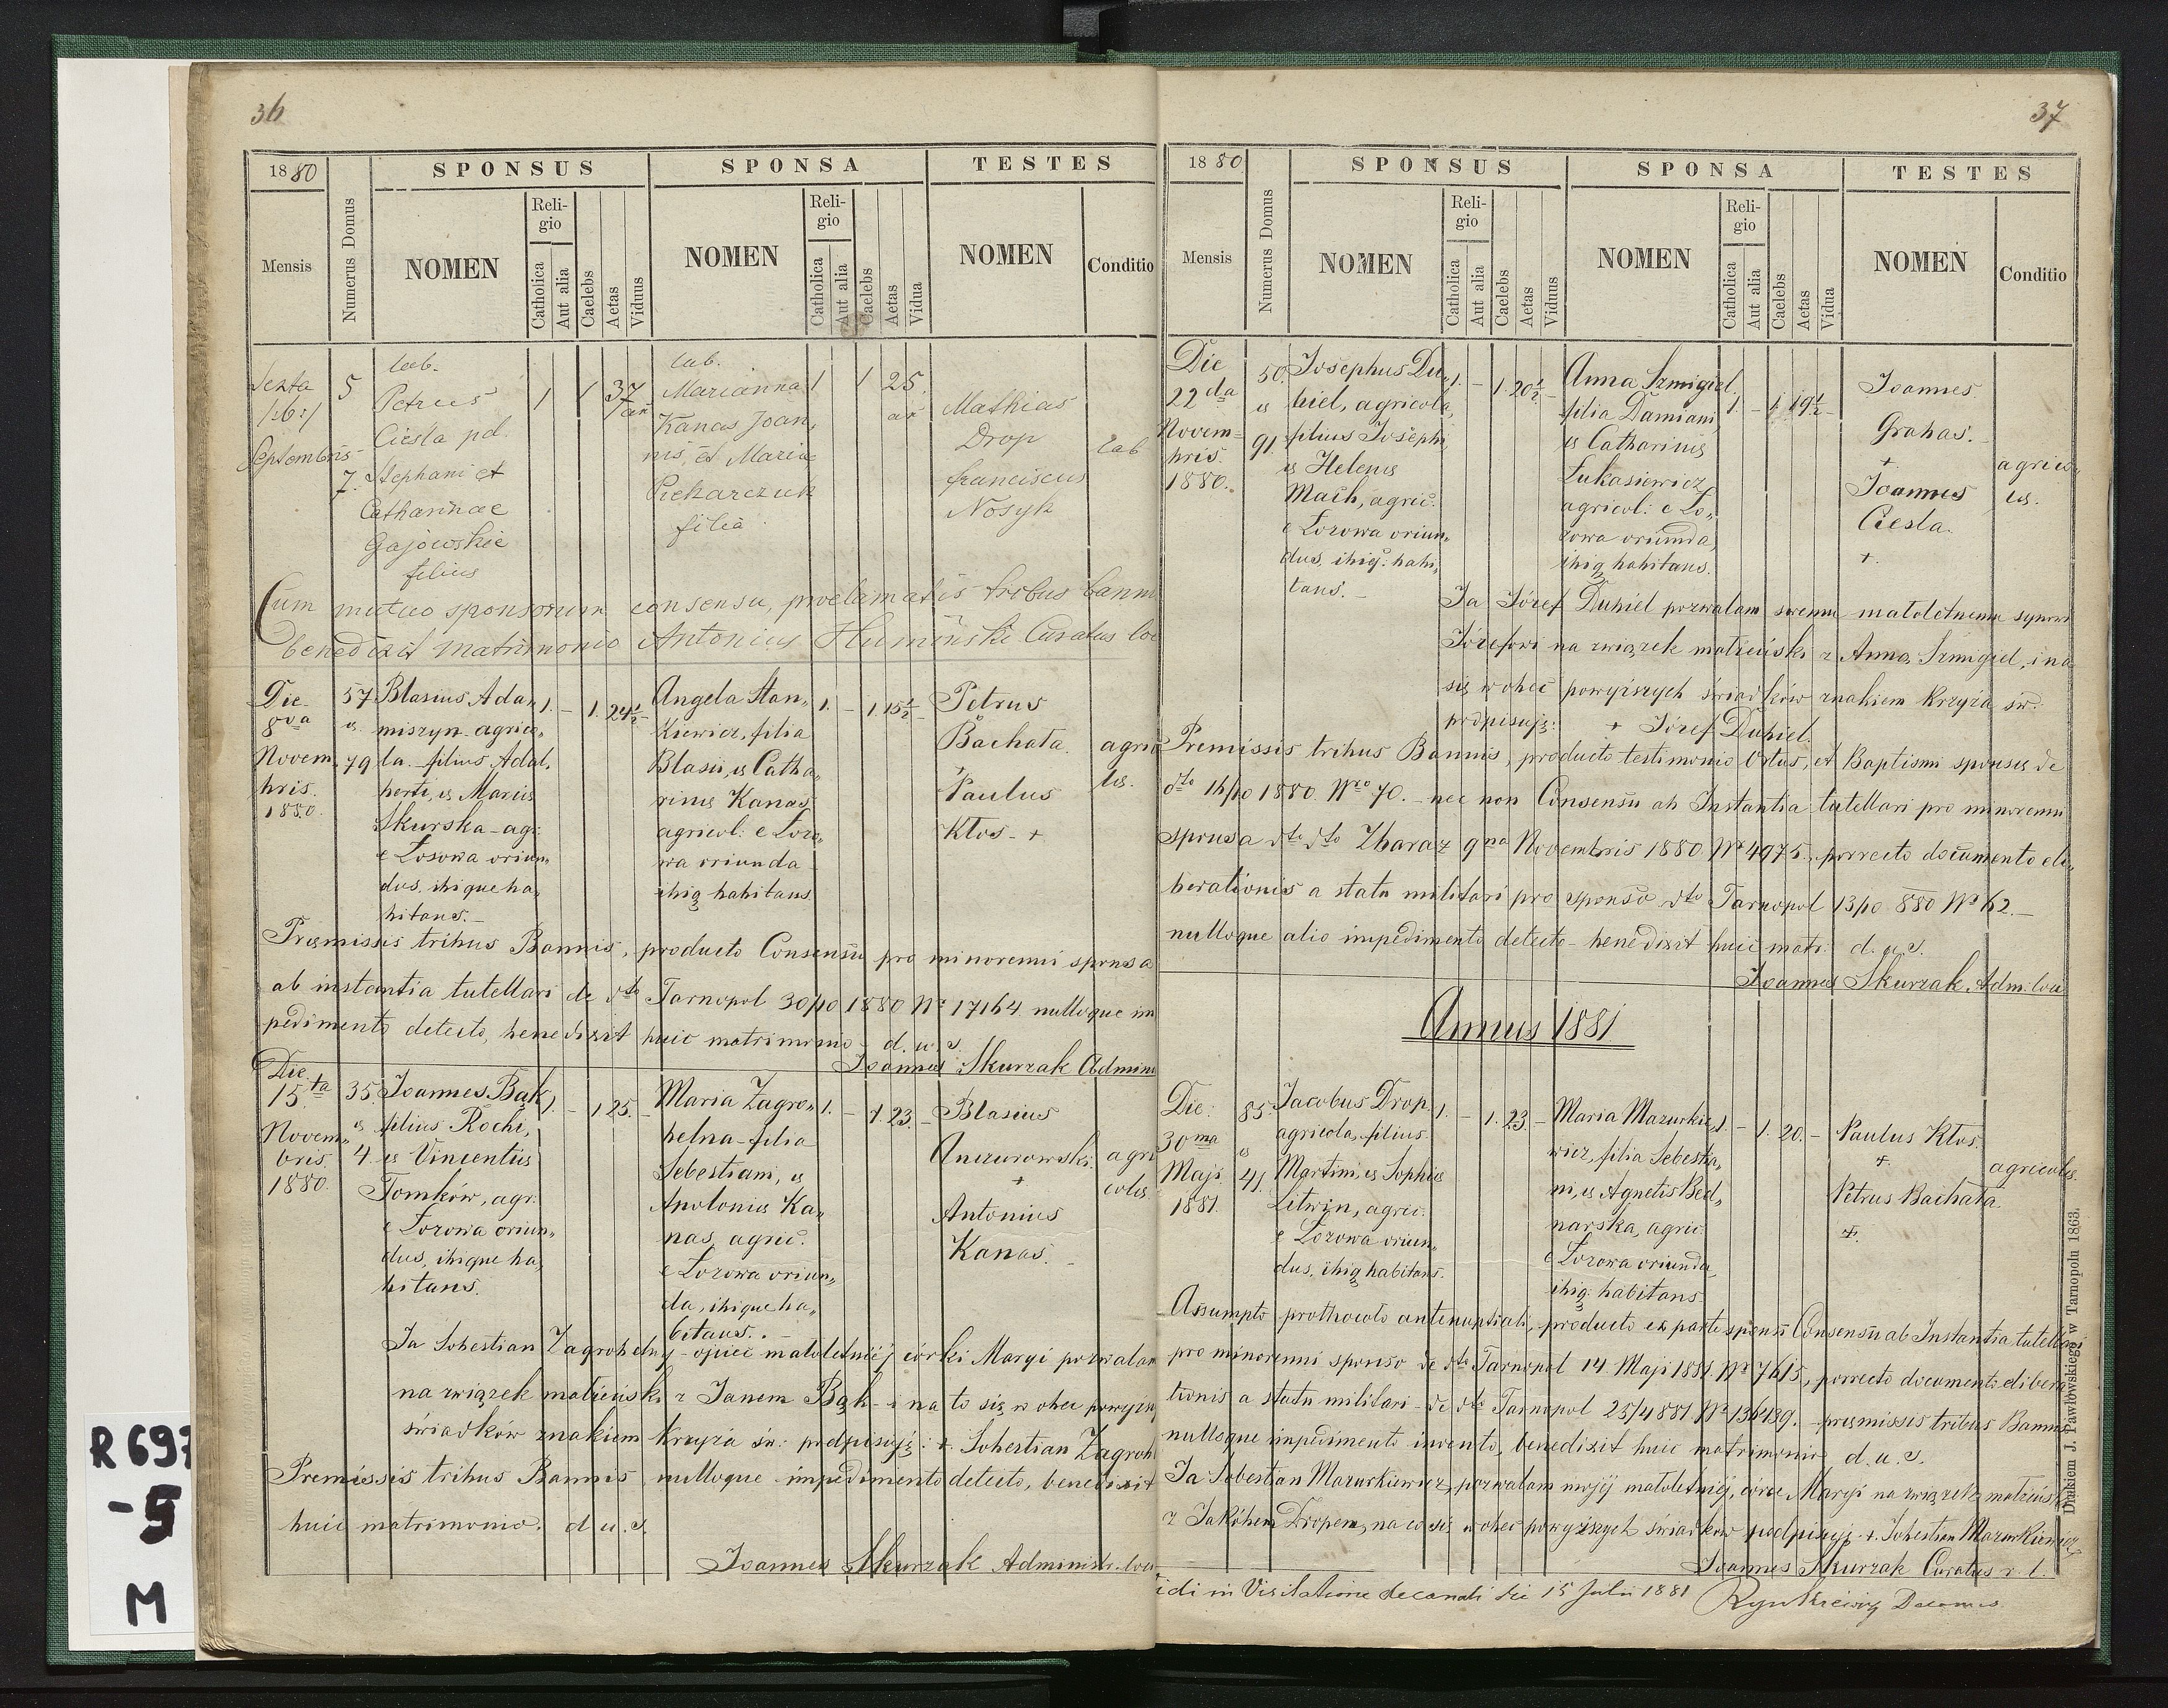 36
1880
SPONSUS
SPONSA
TESTES
Mensis
Numerus Domus
NOMEN
Religio
Catholica
Aut alia
Caelebs
Aetas
Viduus
NOMEN
Religio
Catholica
Aut alia
Caelebs
Aetas
Vidua
NOMEN
Conditio
Sexta
/:6:/
Septembris
5
7.
lab.
Petrus
Ciesla pd.
Stephani et
Catharinae
Gajowskie
filius
1 1 37
an
lab.
Marianna
Kanas Joan„
nis, et Maria
Piekarczuk
filia
1 1 25
an
Mathias
Drop
franciscus
Nosyk
lab
Cum mutuo sponsorum consensu, proclamatis tribus bann
benedixit matrimonio Antonius Humiński Curatus loc
Die
8va
Novem„
bris.
1880.
57
et
79
Blasius Ada„
miszyn agrico„
la. filius Adal„
berti, et Mariæ
Skurska - agr:
e Łosowa oriun„
dus, ibique ha„
bitans. -
1. - 1. 24½ -
Angela Stan„
kiewicz, filia
Blasii, et Catha„
rinæ Kanas,
agricol: e Łozo„
wa oriunda
ibiq habitans
1. - 1. 15½ -
Petrus
Bachata.
+
Paulus
Kłos - +
agrico
læ.
Præmissis tribus Bannis, producto Consensu pro minorenni sponsa
ab instantia tutellari de dto Tarnopol 30/10 1880 No 17164 nulloque im
pedimento detecto, benedixit huic matrimonio - d. u. s.
Joannes Skurzak Admini
Die
15.ta
Novem„
bris
1880.
35.
et
4.
Joannes Bąk
filius Rochi,
et Vincentiæ
Tomków, agr:
e Łozowa oriun„
dus, ibique ha„
bitans.
1. - 1. 25. -
Maria Zagro„
belna - filia
Sebestiani, et
Apoloniæ Ka„
nas, agric.
e Łozowa oriun„
da, ibique ha„
bitans. -
1. - 1. 23. -
Blasius
+
Antonius
Kanas.
agri
colæ.
Ja Sobestian Zagrobelny - ojciec małoletniéj córki Maryi pozwalam
na związek małżeński z Janem Bąk - i na to się w obec powyżs
świadków znakiem krzyża św: podpisuję: +. Sobestian Zagrob
Premissis tribus Bannis, nulloque impedimento detecto, benedixit
huic matrimonio. d. u. s.
Joannes Skurzak Administr. loci
37
1880
SPONSUS
SPONSA
TESTES
Mensis
Numerus Domus
NOMEN
Religio
Catholica
Aut alia
Caelebs
Aetas
Viduus
NOMEN
Religio
Catholica
Aut alia
Caelebs
Aetas
Vidua
NOMEN
Conditio
Die
22da
Novem=
bris.
1880.
50.
et
91.
Josephus Du„
biel, agricola,
filius Josephi,
et Helenæ
Mach, agric:
e Łozowa oriun„
dus, ibiq: habi„
tans. -
1. - 1. 20½ -
Anna Szmigiel
filia Damiani
et Catharinæ
Łukasiewicz,
agricol: e Ło„
zowa oriunda,
ibiq habitans.
1. - 1. 19½ -
Joannes
Grabas.
+
Joannes
Ciesla.
+.
agrico„
læ.
Ja Józef Dubiel pozwalam swemu małoletnemu synowi
Józefowi na związek małżeński z Anną Szmigiel, i na
się w obec powyższych świadków znakiem krzyża św:
podpisuję: + Józef Dubiel.
Premissis tribus Bannis, producto testimonio Ortus, et Baptismi sponsæ de
dto 16/10 1880. Nro 70. - nec non Consensu ab Instantia tutellari pro minorenni
sponsa dto dto Zbaraż 9na Novembris 1880 No 4975, porrecto documento eli„
berationis a statu militari pro sponso dto Tarnopol 13/10 880 No 62. -
nulloque alio impedimento detecto - benedixit huic matr. d. u. s.
Joannes Skurzak, Adm. loci
Annus 1881.
Die:
30ma
Maji
1881.
85.
et
41.
Jacobus Drop,
agricola, filius
Martini, et Sophiæ
Litwin, agric:
e Łozowa oriun„
dus, ibiq habitans.
1. - 1. 23 -
Maria Mazurkie„
wicz, filia Sebestia„
ni, et Agnetis Bed„
narska, agric:
e Łozowa oriunda,
ibiq. habitans
1. - 1. 20. -
Paulus Kłos.
+.
Petrus Bachata.
+.
agricolæ.
Assumpto prothocolo antenuptiali, producto ex parte sponsi Consensu ab Instantia tutellari
pro minorenni sponso de dto Tarnopol 14 Maji 1881. No 7615, porrecto documento elibera
tionis a statu militari - de dto Tarnopol 25/4 881. No - præmissis tribus Bannis
nulloque impedimento invento, benedixit huic matrimonio d. u. s.
Ja Sobestian Mazurkiewicz, pozwalam mojéj małoletniéj, córce Maryi na związek małżeński
z Jakóbem Dropem, na co się w obec powyższych świadków podpisuję +. Sobestian Mazurkiewicz
Joannes Skurzak Curatus r. l.
idi in Visitatione decanali die 15 Julii 1881 Decanus
Drukiem J. Pawłowskiego w Tarnopolu 1863.
R 697
-5
M